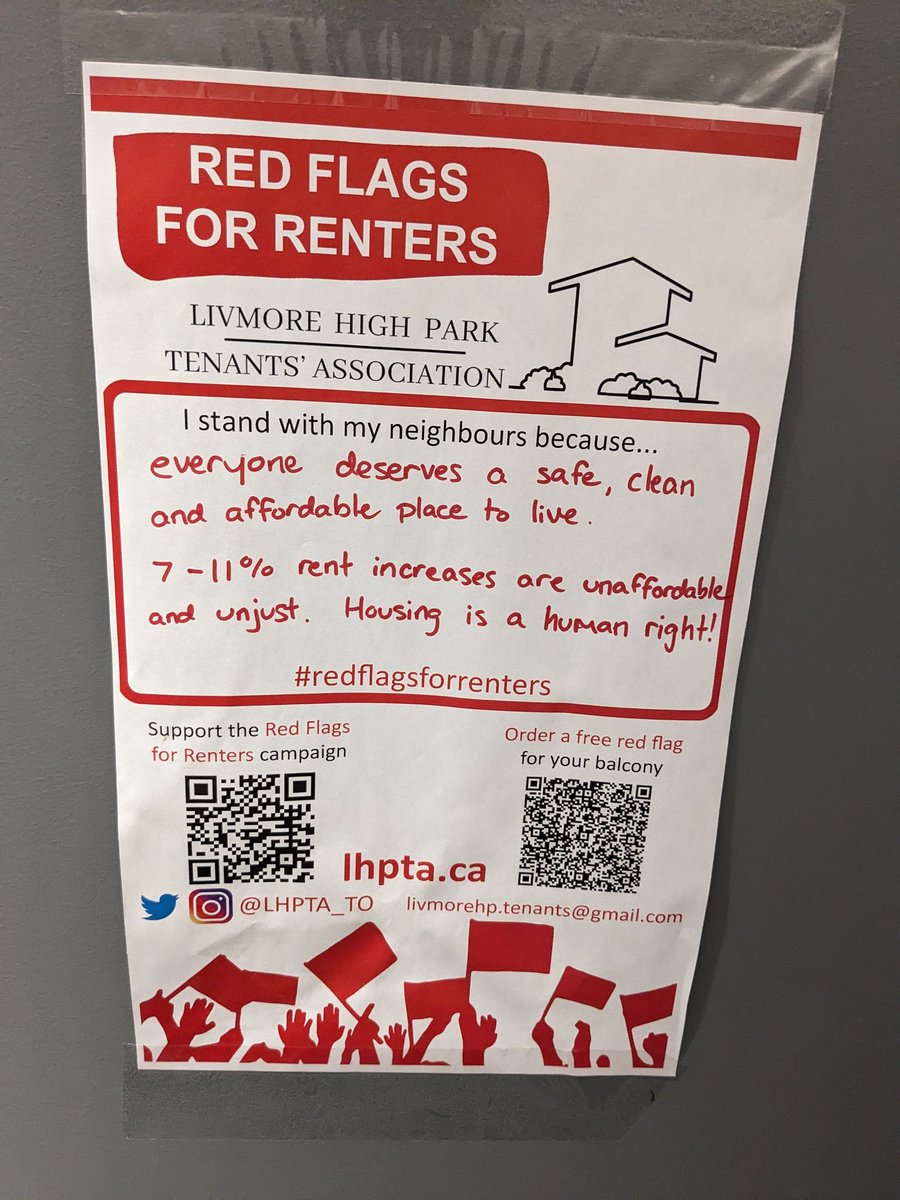 RED FLAGS
FOR RENTERS
LIVMORE HIGH PARK
TENANTS' ASSOCIATION
I stand with my neighbours because...
everyone deserves a safe, clean
and affordable place to live.
7-11% rent increases are unaffordable
and unjust. Housing is a human right!
#redflagsforrenters
Support the Red Flags
for Renters campaign
Order a free red flag
for your balcony
lhpta.ca
@LHPTA_TO
livmorehp.tenants@gmail.com